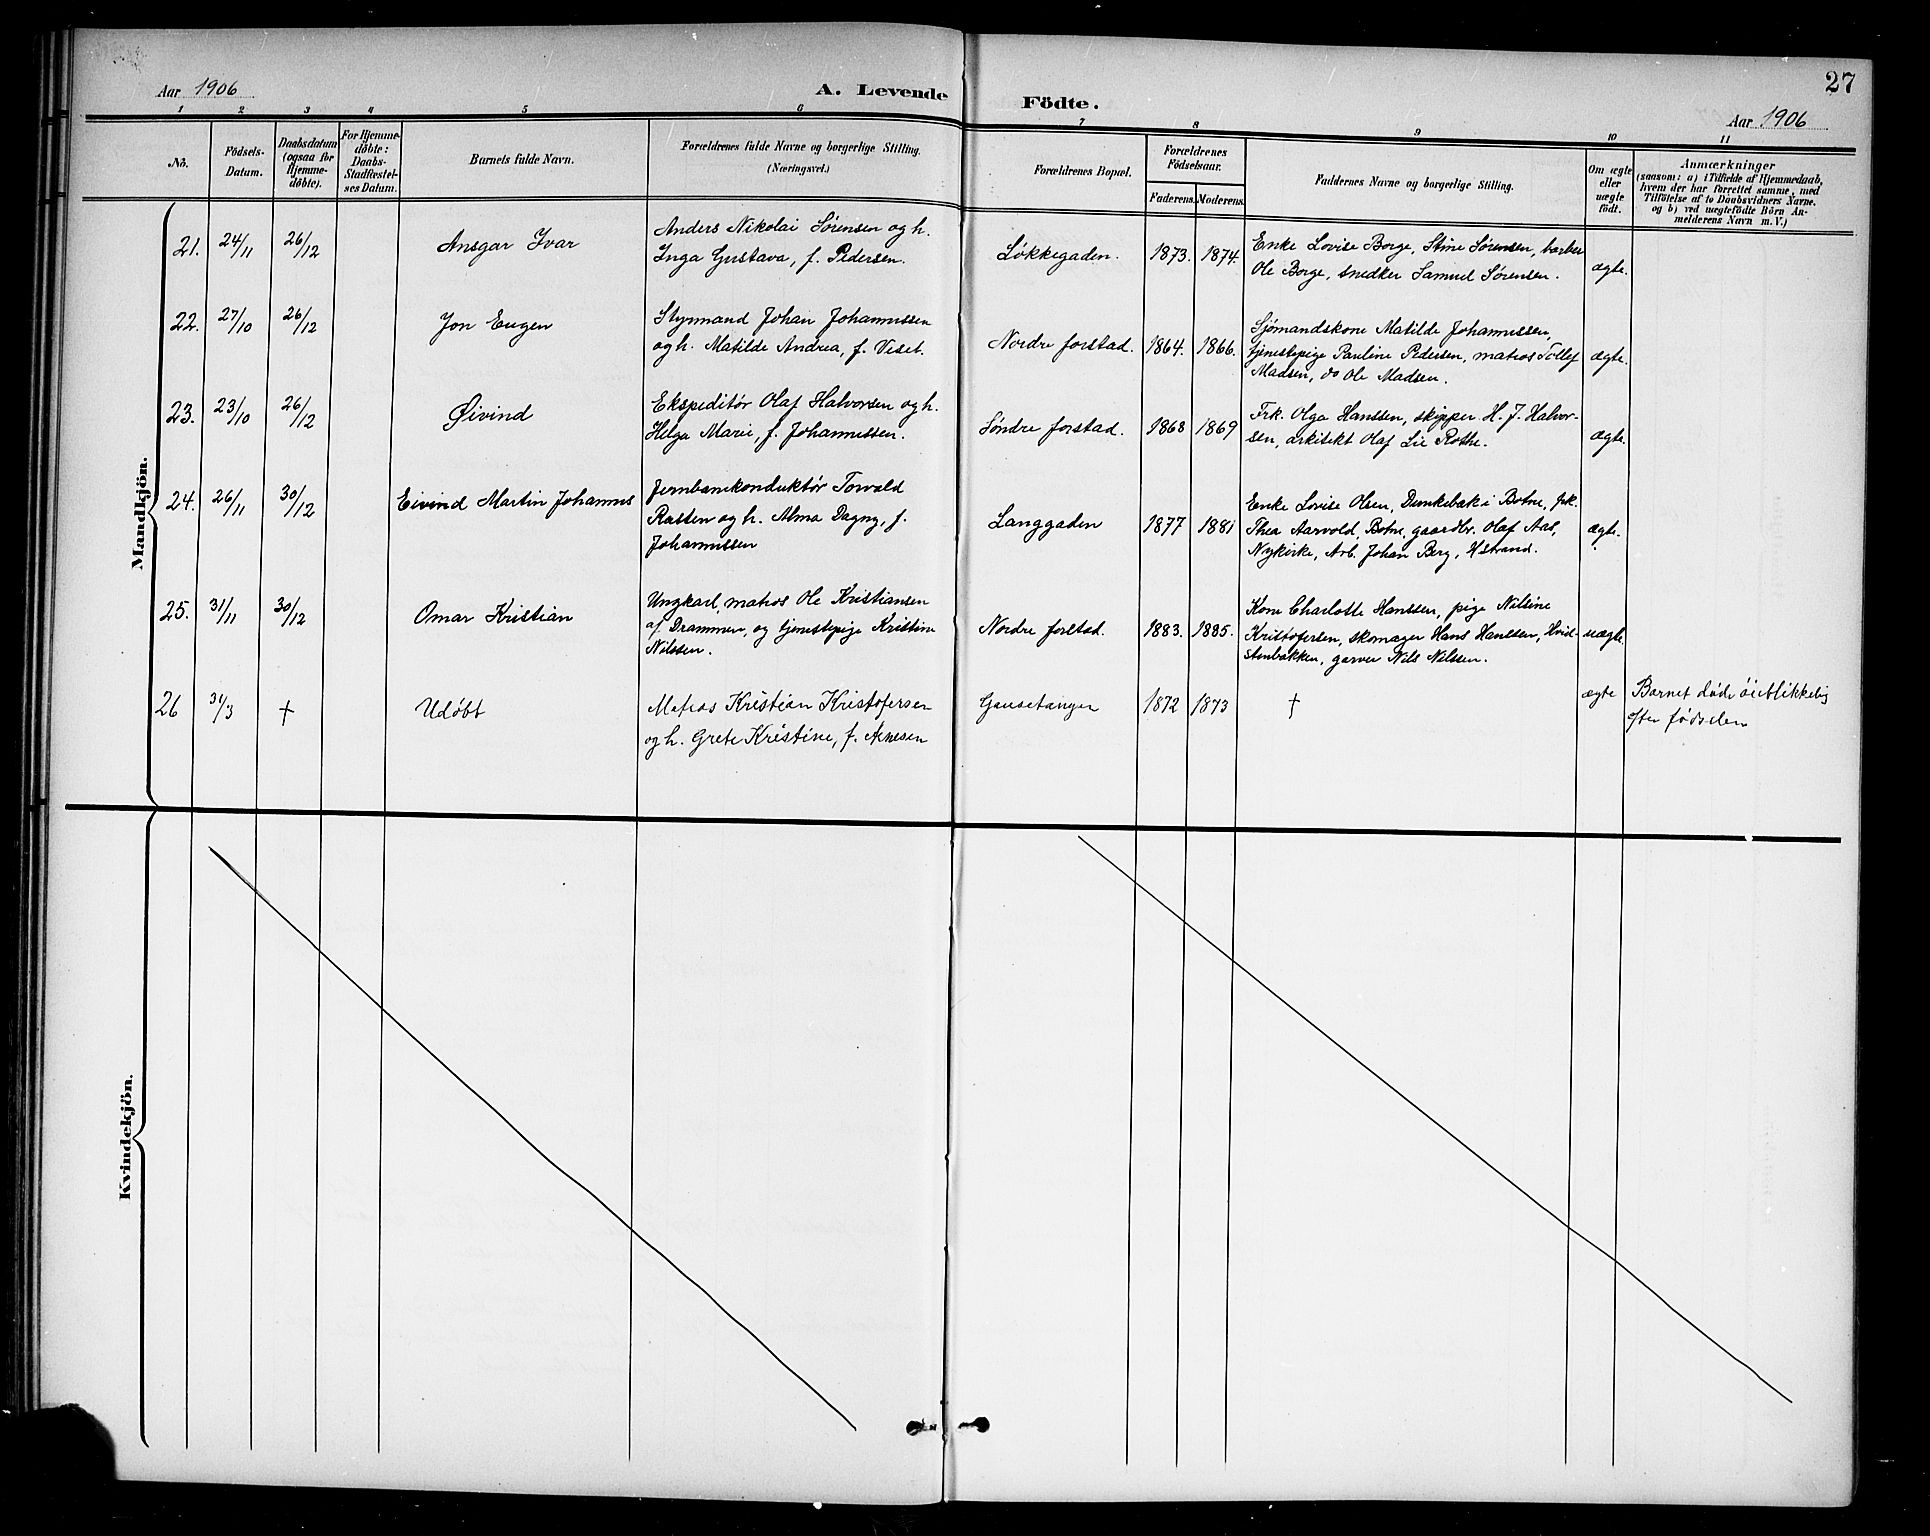 27
Aar 1906
A. Levende Födte.
Aar 1906
1 2 3 4 5 6 7 8 9 10 11
No.
Födsels-
Datum.
Daabsdatum
(ogsaa for
Hjemme-
döbte).
For Hjemme-
döbte:
Daabs-
Stadfæstel-
ses Datum.
Barnets fulde Navn.
Forældrenes fulde Navne og borgerlige Stilling.
(Næringsvei.)
Forældrenes Bopæl.
Forældrenes
Födselsaar.
Faderens. Moderens.
Faddernes Navne og borgerlige Stilling.
Om ægte
eller
uægte
födt.
Anmærkninger
(saasom: a) i Tilfælde af Hjemmedaab,
hvem der har forrettet samme, med
Tilföielse af to Daabsvidners Navne.
og b) ved uægtefödte Börn An-
melderens Navn m.V.)
Mandkjön.
21. 24/11 26/12 Ansgar Ivar
Anders Nikolai Sørensen og h.
Inga Gustava, f. Pedersen.
Løkkegaden. 1873. 1874.
Enke Lovise Borge, Stine Sørensen, barber
Ole Borge, snedker Samuel Sørensen.
ægte.
22. 27/10 26/12 Jon Eugen
Styrmand Johan Johannessen
og h. Matilde Andrea, f. Viset.
Nordre forstad. 1864. 1866.
Sjømandskone Matilde Johannessen,
tjenestepige Pauline Pedersen, matros Tollef
Madsen, do Ole Madsen.
ægte.
23. 23/10 26/12 Øivind
Ekspeditør Olaf Halvorsen og h.
Helga Marie, f. Johannessen.
Søndre forstad. 1868 1869
Frk. Olga Hanssen, skipper H. J. Halvor-
sen, arkitekt Olaf Lie Rothe.
ægte.
24. 26/11 30/12 Eivind Martin Johannes
Jernbanekonduktør Torvald
Rasten og h. Alma Dagny, f.
Johannessen
Langgaden 1877 1881
Enke Lovise Olsen, Dunkebæk i Botne, frk.
Thea Aarvold, Botne, gaardbr. Olaf Aas,
Nykirke, Arb. Johan Berg, Hstrand.
ægte.
25. 31/11 30/12 Omar Kristian
Ungkarl, matros Ole Kristiansen
af Drammen, og tjenestepige Kristine
Nilssen.
Nordre forstad. 1883. 1885.
Kone Charlotte Hanssen, pige Nilsine
Kristofersen, skomager Hans Hanssen, Hvid-
stenbakken, garver Nils Nilssen.
uægte.
26 31/3 † Udøbt
Matros Kristian Kristofersen
og h. Grete Kristine, f. Arnesen
Gausetangen 1872 1873 † ægte
Barnet døde öieblikkelig
efter fødselen
Kvindekjön.